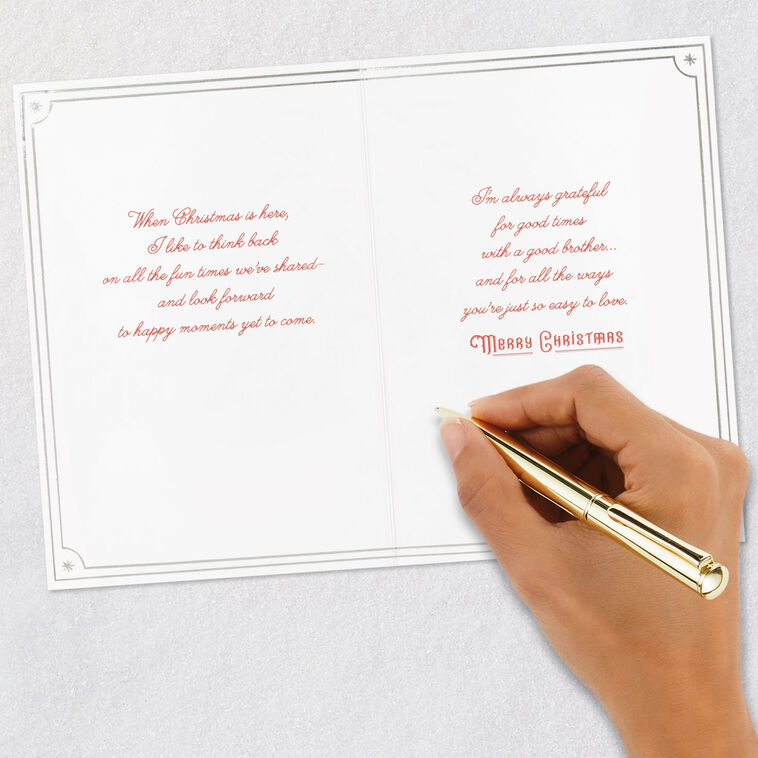 When Christmas is here,
I like to think back
on all the fun times we've shared–
and look forward
to happy moments yet to come.
I'm always grateful
for good times
with a good brother...
and for all the ways
you're just so easy to love.
Merry Christmas